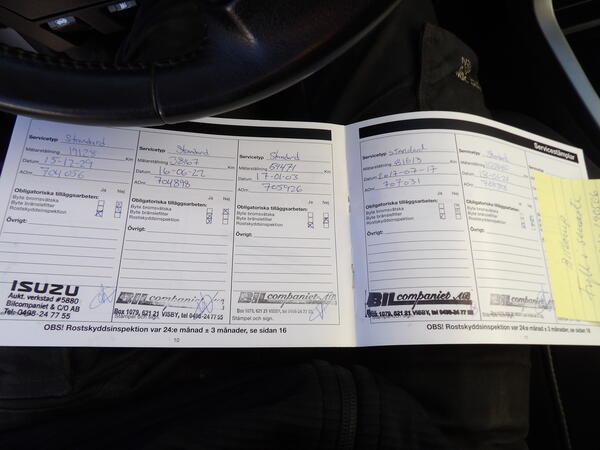 Servicetyp Standard
Mätarställning 19128 Km
Datum 15-12-29
AOnr 704056
Ja Nej
Obligatoriska tilläggsarbeten:
Byte bromsvätska
Byte bränslefilter
Rostskyddsinspektion
Övrigt:
ISUZU
Aukt. verkstad #5880
Bilcompaniet & C/O AB
Tel: 0498-24 77 55
Servicetyp Standard
Mätarställning 38167 Km
Datum 16-06-22
AOnr 704898
Ja Nej
Obligatoriska tilläggsarbeten:
Byte bromsvätska
Byte bränslefilter
Rostskyddsinspektion
Övrigt:
BILcompaniet AB
Box 1079, 621 21 VISBY, tel 0498-24 77 55
Stämpel och sign.
Servicetyp Standard
Mätarställning 59471 Km
Datum 17-01-03
AOnr 705926
Ja Nej
Obligatoriska tilläggsarbeten:
Byte bromsvätska
Byte bränslefilter
Rostskyddsinspektion
Övrigt:
BILcompaniet AB
Box 1079, 621 21 VISBY, tel 0498-24 77 55
Stämpel och sign.
OBS! Rostskyddsinspektion var 24:e månad ± 3 månader, se sidan 16
10
Servicestämplar
Servicetyp Standard
Mätarställning 81613 Km
Datum 2017-07-17
AOnr 707031
Ja Nej
Obligatoriska tilläggsarbeten:
Byte bromsvätska
Byte bränslefilter
Rostskyddsinspektion
Övrigt:
BILcompaniet AB
Box 1079, 621 21 VISBY, tel 0498-24 77 55
Stämpel och sign.
Servicetyp Standard
Mätarställning
Datum
AOnr
Obligatoriska tilläggsarbeten:
Byte bromsvätska
Byte bränslefilter
Rostskyddsinspektion
Övrigt:
OBS! Rostskyddsinspektion var 24:e månad ± 3 månader, se sidan 16